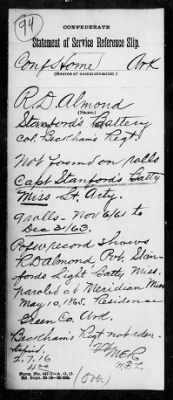 94
CONFEDERATE
Statement of Service Reference Slip.
Conf Home Ark
(Source of communication.)
R. D. Almond
(Name.)
Stanford's Battery
Col. Beckham's Regt.
Not found on rolls
Capt Stanford's Batty
Miss Lt. Arty.
9 rolls - Nov 6/61 to
Dec 31/63.
P of W record shows
R D Almond, Pvt, Stan-
fords Light Batty, Miss.
paroled at Meridian Miss
May 10, 1865. Residence
Green Co. Ark.
Beckham's Regt not iden-
tified.
2.7.16
(Over.)